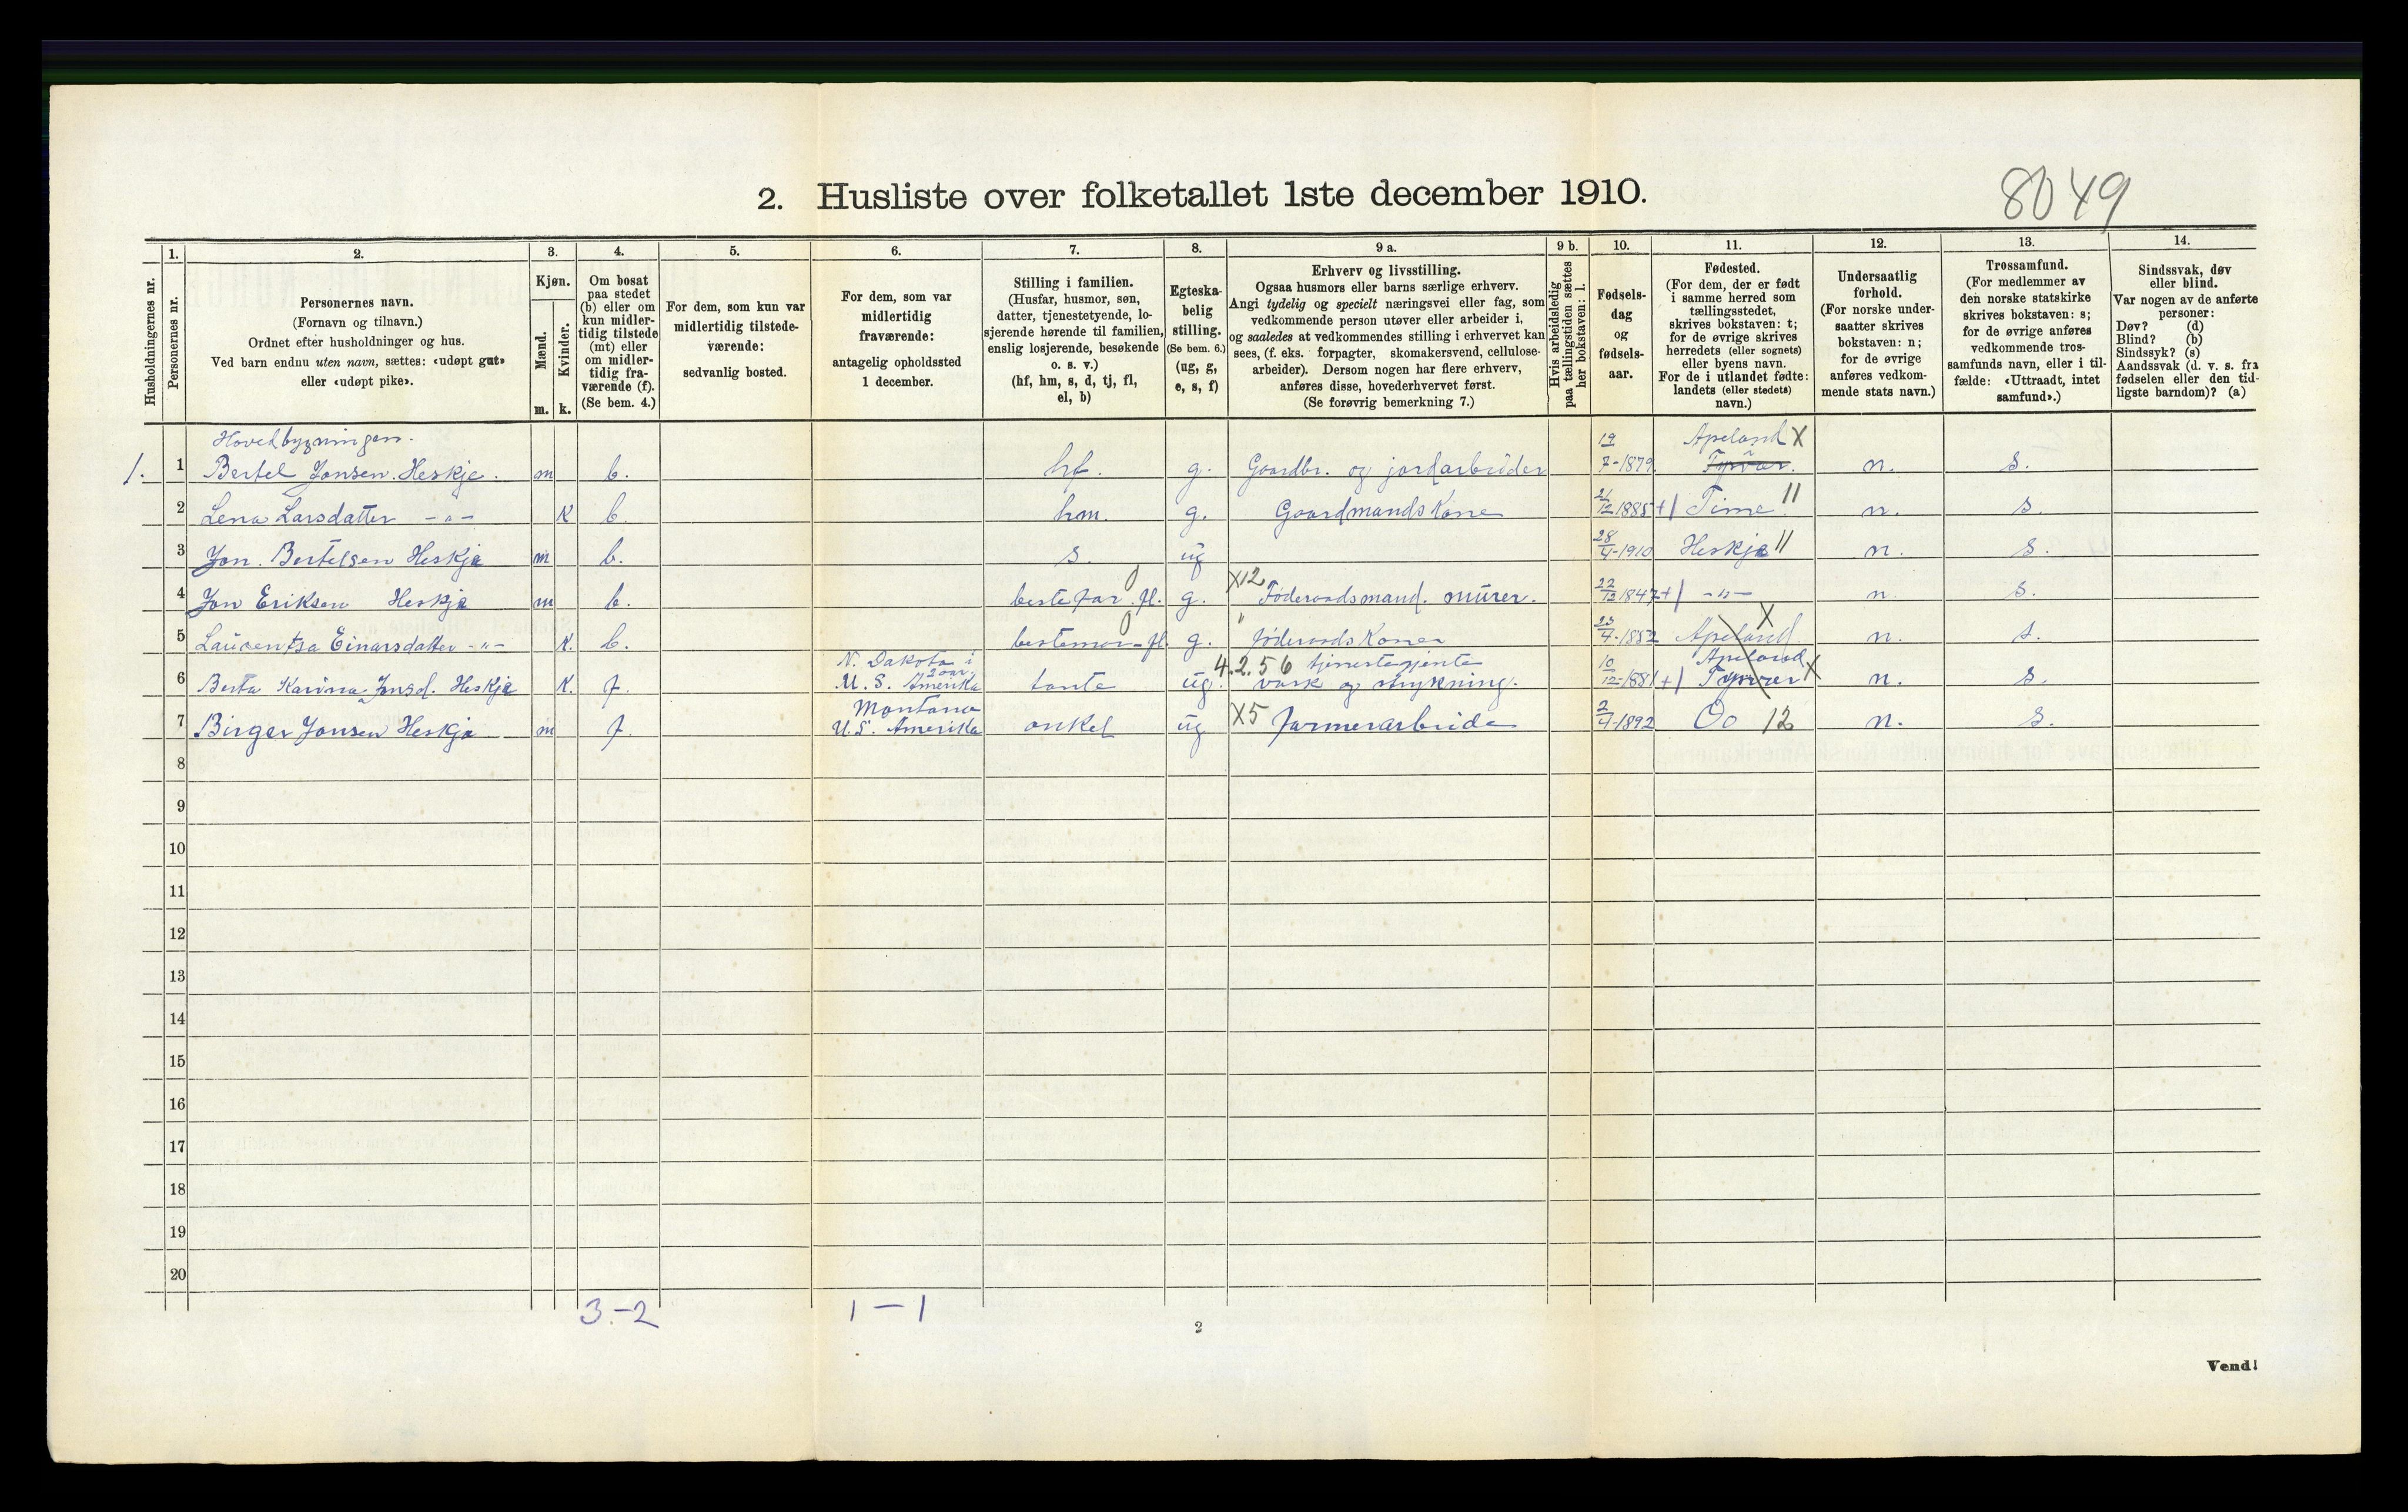 8049
2. Husliste over folketallet 1ste december 1910.
Husholdningernes nr.
1.
Personernes nr.
2.
Personernes navn.
(Fornavn og tilnavn.)
Ordnet efter husholdninger og hus.
Ved barn endnu uten navn, sættes: «udøpt gut»
eller «udøpt pike».
3.
Kjøn.
Mænd.
Kvinder.
m. k.
4.
Om bosat
paa stedet
(b) eller om
kun midler-
tidig tilstede
(mt) eller
om midler-
tidig fra-
værende (f).
(Se bem. 4.)
5.
For dem, som kun var
midlertidig tilstede-
værende:
sedvanlig bosted.
6.
For dem, som var
midlertidig
fraværende:
antagelig opholdssted
1 december.
7.
Stilling i familien.
(Husfar, husmor, søn,
datter, tjenestetyende, lo-
sjerende hørende til familien,
enslig losjerende, besøkende
o. s. v.)
(hf, hm, s, d, tj, fl,
el, b)
8.
Egteska-
belig
stilling.
(Se bem. 6.)
(ug, g,
e, s, f)
9 a.
Erhverv og livsstilling.
Ogsaa husmors eller barns særlige erhverv.
Angi tydelig og specielt næringsvei eller fag, som
vedkommende person utøver eller arbeider i,
og saaledes at vedkommendes stilling i erhvervet kan
sees, (f. eks. forpagter, skomakersvend, cellulose-
arbeider). Dersom nogen har flere erhverv,
anføres disse, hovederhvervet først.
(Se forøvrig bemerkning 7.)
9 b.
Hvis arbeidsledig
paa tællingstiden sættes
her bokstaven: l.
10.
Fødsels-
dag
og
fødsels-
aar.
11.
Fødested.
(For dem, der er født
i samme herred som
tællingsstedet,
skrives bokstaven: t;
for de øvrige skrives
herredets (eller sognets)
eller byens navn.
For de i utlandet fødte:
landets (eller stedets)
navn.)
12.
Undersaatlig
forhold.
(For norske under-
saatter skrives
bokstaven: n;
for de øvrige
anføres vedkom-
mende stats navn.)
13.
Trossamfund.
(For medlemmer av
den norske statskirke
skrives bokstaven: s;
for de øvrige anføres
vedkommende tros-
samfunds navn, eller i til-
fælde: «Uttraadt, intet
samfund».)
14.
Sindssvak, døv
eller blind.
Var nogen av de anførte
personer:
Døv? (d)
Blind? (b)
Sindssyk? (s)
Aandssvak (d. v. s. fra
fødselen eller den tid-
ligste barndom)? (a)
Hovedbygningen. 19 Apeland X
1. 1 Bertel Jonsen Heskje. m b. hf. g. Gaardbr. og jordarbeider 7-1879 Tysvær. n. s.
2 Lena Larsdatter -"- K b. hm. g. Gaardmands Kone 12 1885 +| Time 11 n. s.
3 Jon. Bertelsen Heskje m b. s. ug 28/4-1910 Heskje 11 n. s.
4 Jon Eriksen Heskje m b. bestefar. fl. g. X12 Føderaadsmand. murer. 22/12 1847 +| -"- n s.
5 Einarsdatter -"- K. b. bestemor-fl. g. " føderaads Kone 23/4-1852 Apeland X n. s.
N. Dakota i 2 aar. 4.2.56 tjenestepjente 10 Apeland
6 Berta Karina Jonsd. Heskje K. f. U. S. Amerika tante ug. vask og strykning. 12-1881 +| Tysvær X n. s.
Montana
7 Birger Jonsen Heskje m f. U.S. Amerika onkel ug X5 farmerarbeide 2/4-1892 Do 12 n. s.
8
9
10
11
12
13
14
15
16
17
18
19
20
3-2 1-1
2
Vend!